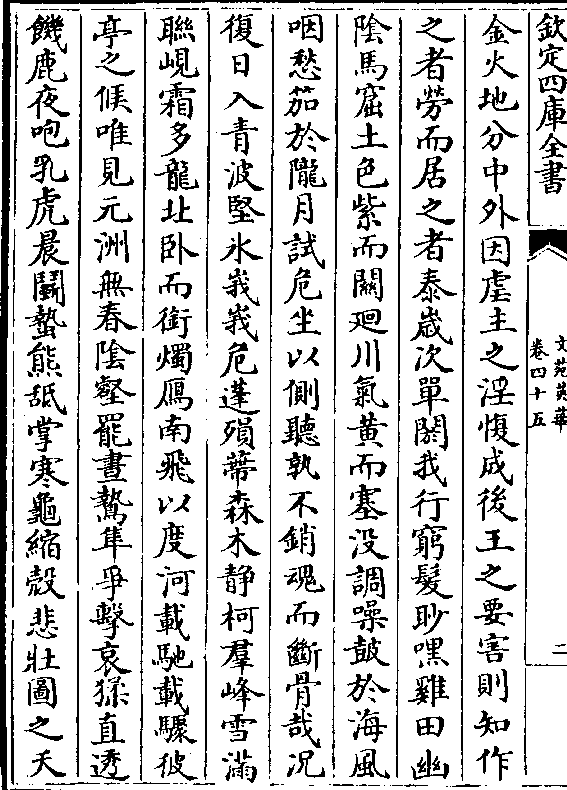 欽定四庫全書
文苑英華
卷四十五
二
金火地分中外因虐主之淫愎成後王之要害則知作
之者勞而居之者泰歲次單閼我行窮髮眇嘿雞田幽
陰馬窟土色紫而關迴川氣黃而塞没調噪鼓於海風
咽愁笳於隴月試危坐以側聽孰不銷魂而斷骨哉况
復日入青波堅氷峩峩危蓬殞蔕森木静柯羣峰雪滿
聯峴霜多龍北卧而銜燭鴈南飛以度河載馳載驟彼
亭之候唯見元洲無春陰壑罷晝鷙隼爭擊哀猱直透
饑鹿夜咆乳虎晨鬬蟄熊舐掌寒龜縮殻悲壯圖之天